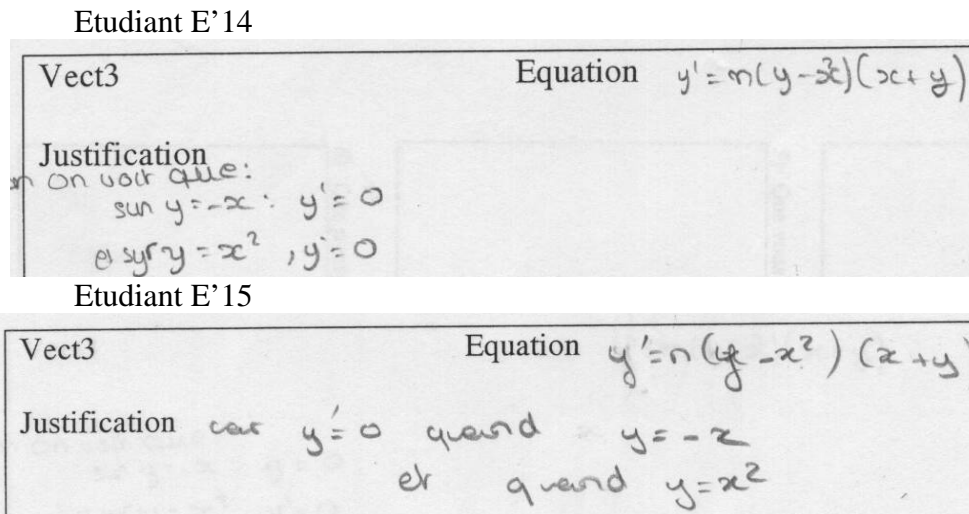 Etudiant E'14
Vect3 Equation y'=n(y-x²)(x+y)
Justification
on On voit que:
sur y=-x : y'=0
et sur y=x², y'=0
Etudiant E'15
Vect3 Equation y'=n(y-x²)(x+y)
Justification car y'=0 quand y=-x
et quand y=x²